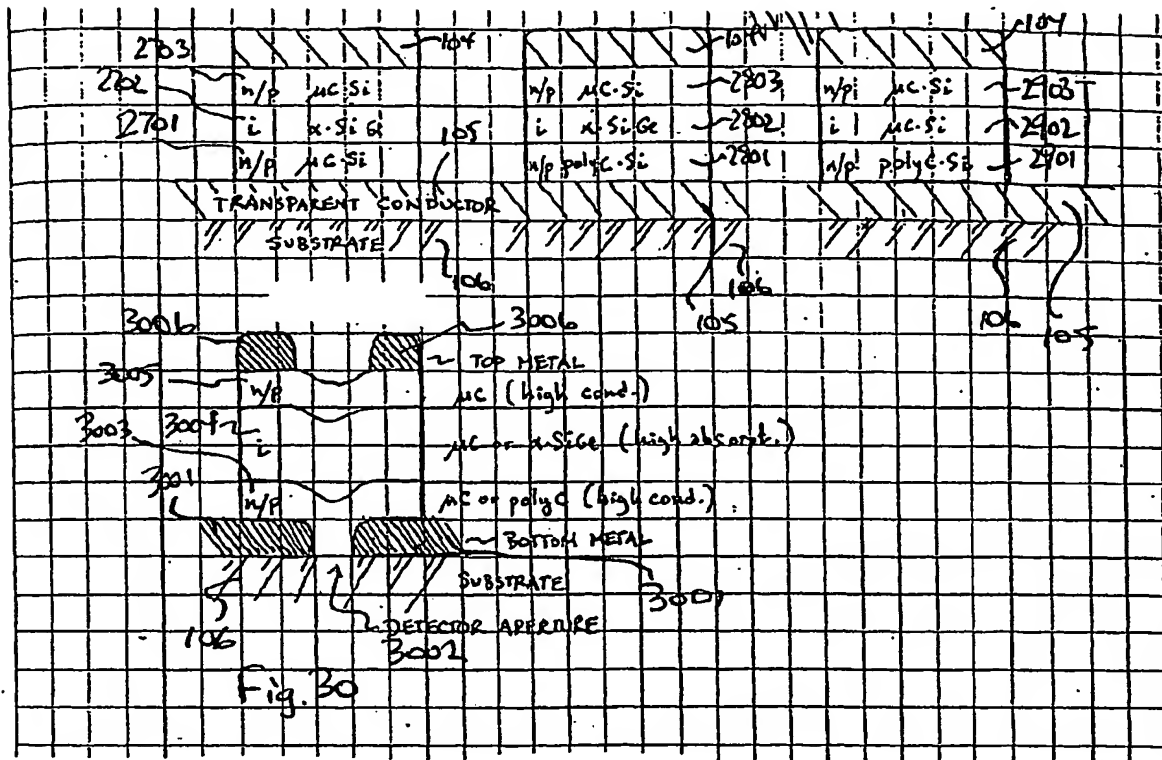 2703 104 104 104
n/p µC·Si n/p µC·Si 2803 n/p µC·Si 2903
2702 i α·SiGe 105 i α·SiGe 2802 i µC·Si 2902
2701 n/p µC·Si n/p polyC·Si 2801 n/p polyC·Si 2901
TRANSPARENT CONDUCTOR
SUBSTRATE
106 106 105 106 105
3006 3006
TOP METAL
3005 n/p µC (high cond.)
3003 3004 i µC or α·SiGe (high absorpt.)
3001 n/p µC or polyC (high cond.)
BOTTOM METAL
SUBSTRATE 3001
106 DETECTOR APERTURE
3002
Fig. 30